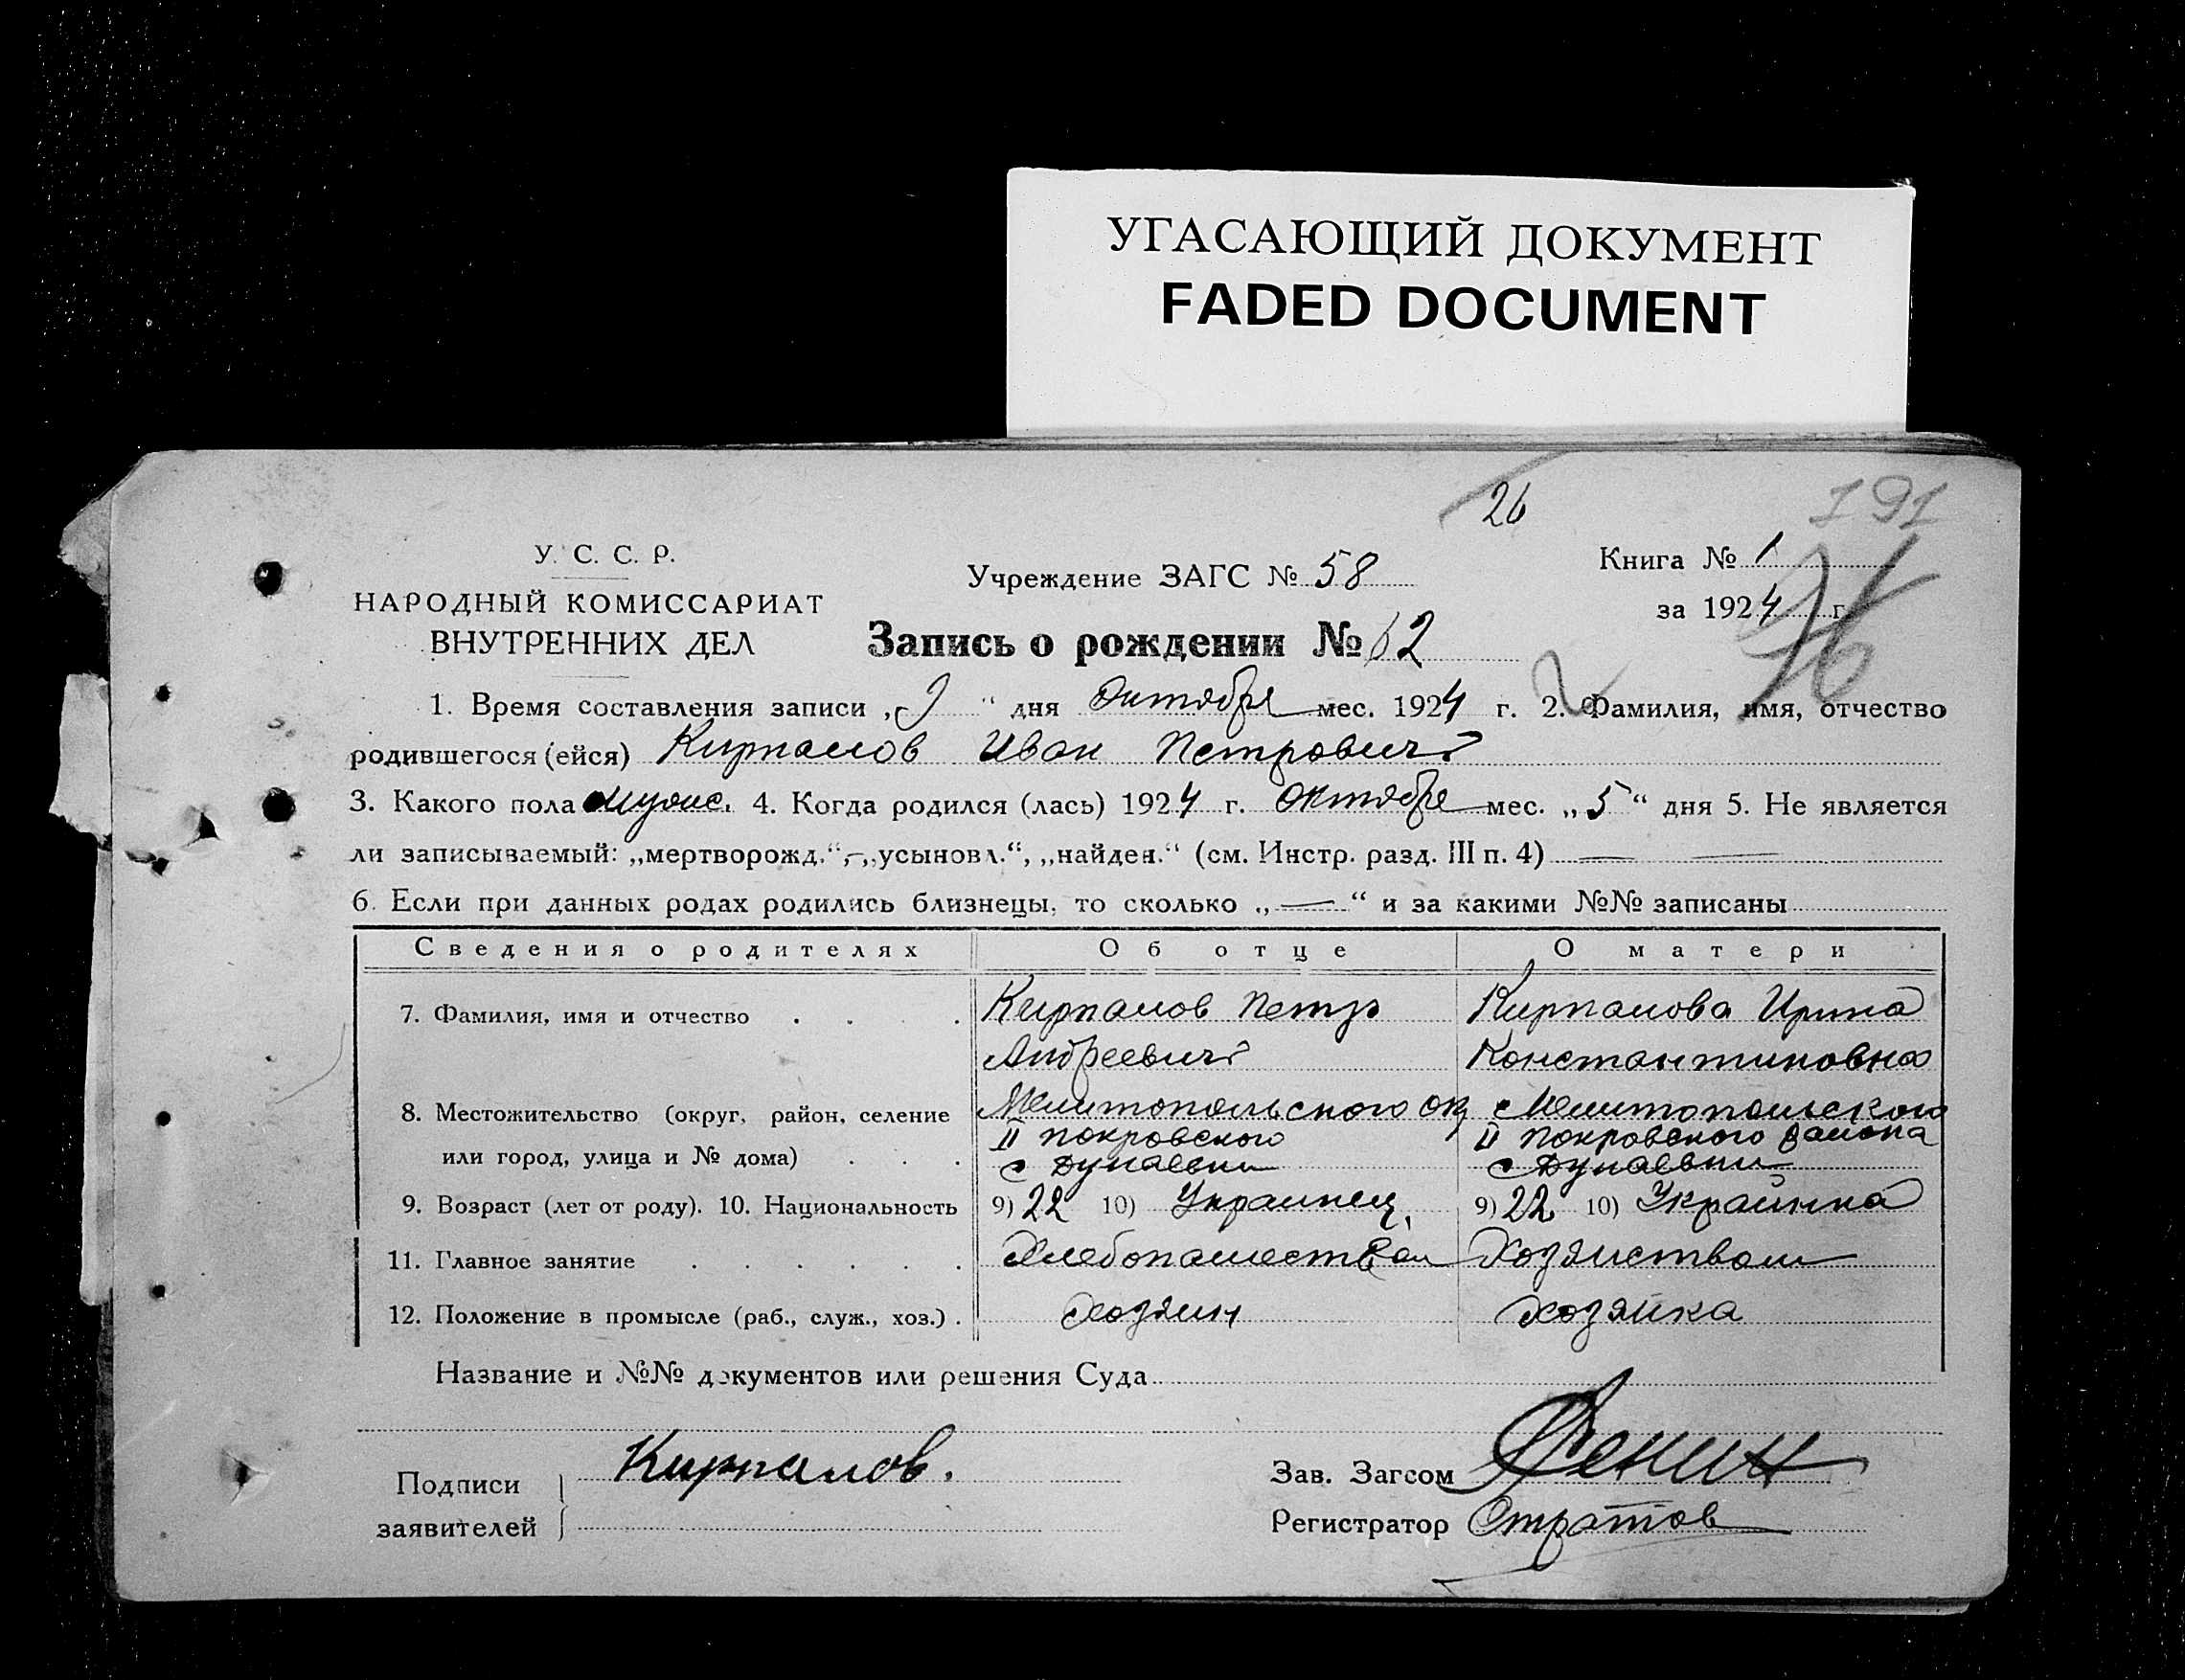 УГАСАЮЩИЙ ДОКУМЕНТ
FADED DOCUMENT
26
191
У. С. С. Р.
НАРОДНЫЙ КОМИССАРИАТ
ВНУТРЕННИХ ДЕЛ
Учреждение ЗАГС № 58
Книга № 1
за 1924 г.
76
Запись о рождении № 62
1. Время составления записи „9“ дня Октября мес. 1924 г. 2. Фамилия, имя, отчество
родившегося (ейся) Кирпанов Иван Петрович
3. Какого пола мужс. 4. Когда родился (лась) 1924 г. Октября мес. „5“ дня 5. Не является
ли записываемый: „мертворожд.“, „усыновл.“, „найден.“ (см. Инстр. разд. III п. 4) — —
6. Если при данных родах родились близнецы, то сколько „—“ и за какими №№ записаны
Сведения о родителях Об отце О матери
7. Фамилия, имя и отчество . . . . Кирпанов Петр Кирпанова Ирина
Андреевич Константиновна
8. Местожительство (округ, район, селение Мелитопольского ок Мелитопольского
II Покровского II Покровского района
или город, улица и № дома) . . . с Дунаевки с Дунаевки
9. Возраст (лет от роду). 10. Национальность 9) 22 10) Украинец, 9) 22 10) Украинка
11. Главное занятие . . . . . . Хлебопашеством Хозяйством
12. Положение в промысле (раб., служ., хоз.) . Хозяин Хозяйка
Название и №№ документов или решения Суда
Подписи
заявителей
Кирпанов.
Зав. Загсом
Регистратор Стратов